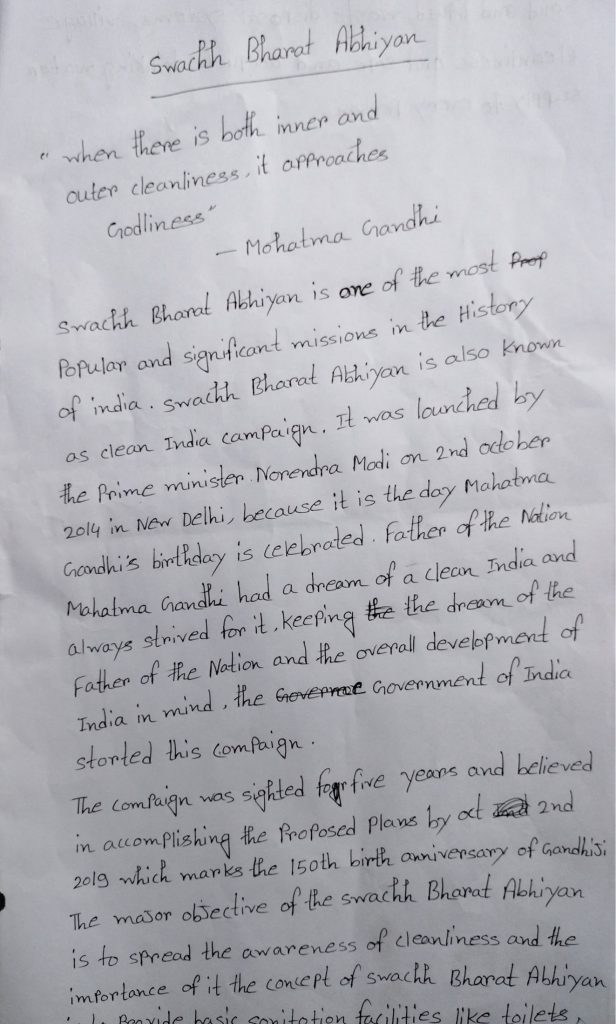 Swachh Bharat Abhiyan
" when there is both inner and
outer cleanliness, it approaches
Godliness"
— Mohatma Gandhi
Swachh Bharat Abhiyan is one of the most Prop
Popular and significant missions in the History
of india. Swachh Bharat Abhiyan is also known
as clean India campaign. It was lounched by
the Prime minister Norendra Modi on 2nd october
2014 in New Delhi, because it is the day Mahatma
Gandhi's birthday is celebrated. Father of the Nation
Mahatma Gandhi had a dream of a clean India and
always strived for it, keeping the the dream of the
Father of the Nation and the overall development of
India in mind, the Government of India
storted this compaign.
The compaign was sighted for five years and believed
in accomplishing the Proposed Plans by oct 2nd
2019 which marks the 150th birth anniversary of Gandhiji
The major objective of the swachh Bharat Abhiyan
is to spread the awareness of cleanliness and the
importance of it the concept of swachh Bharat Abhiyan
Provide basic sanitation facilities like toilets,